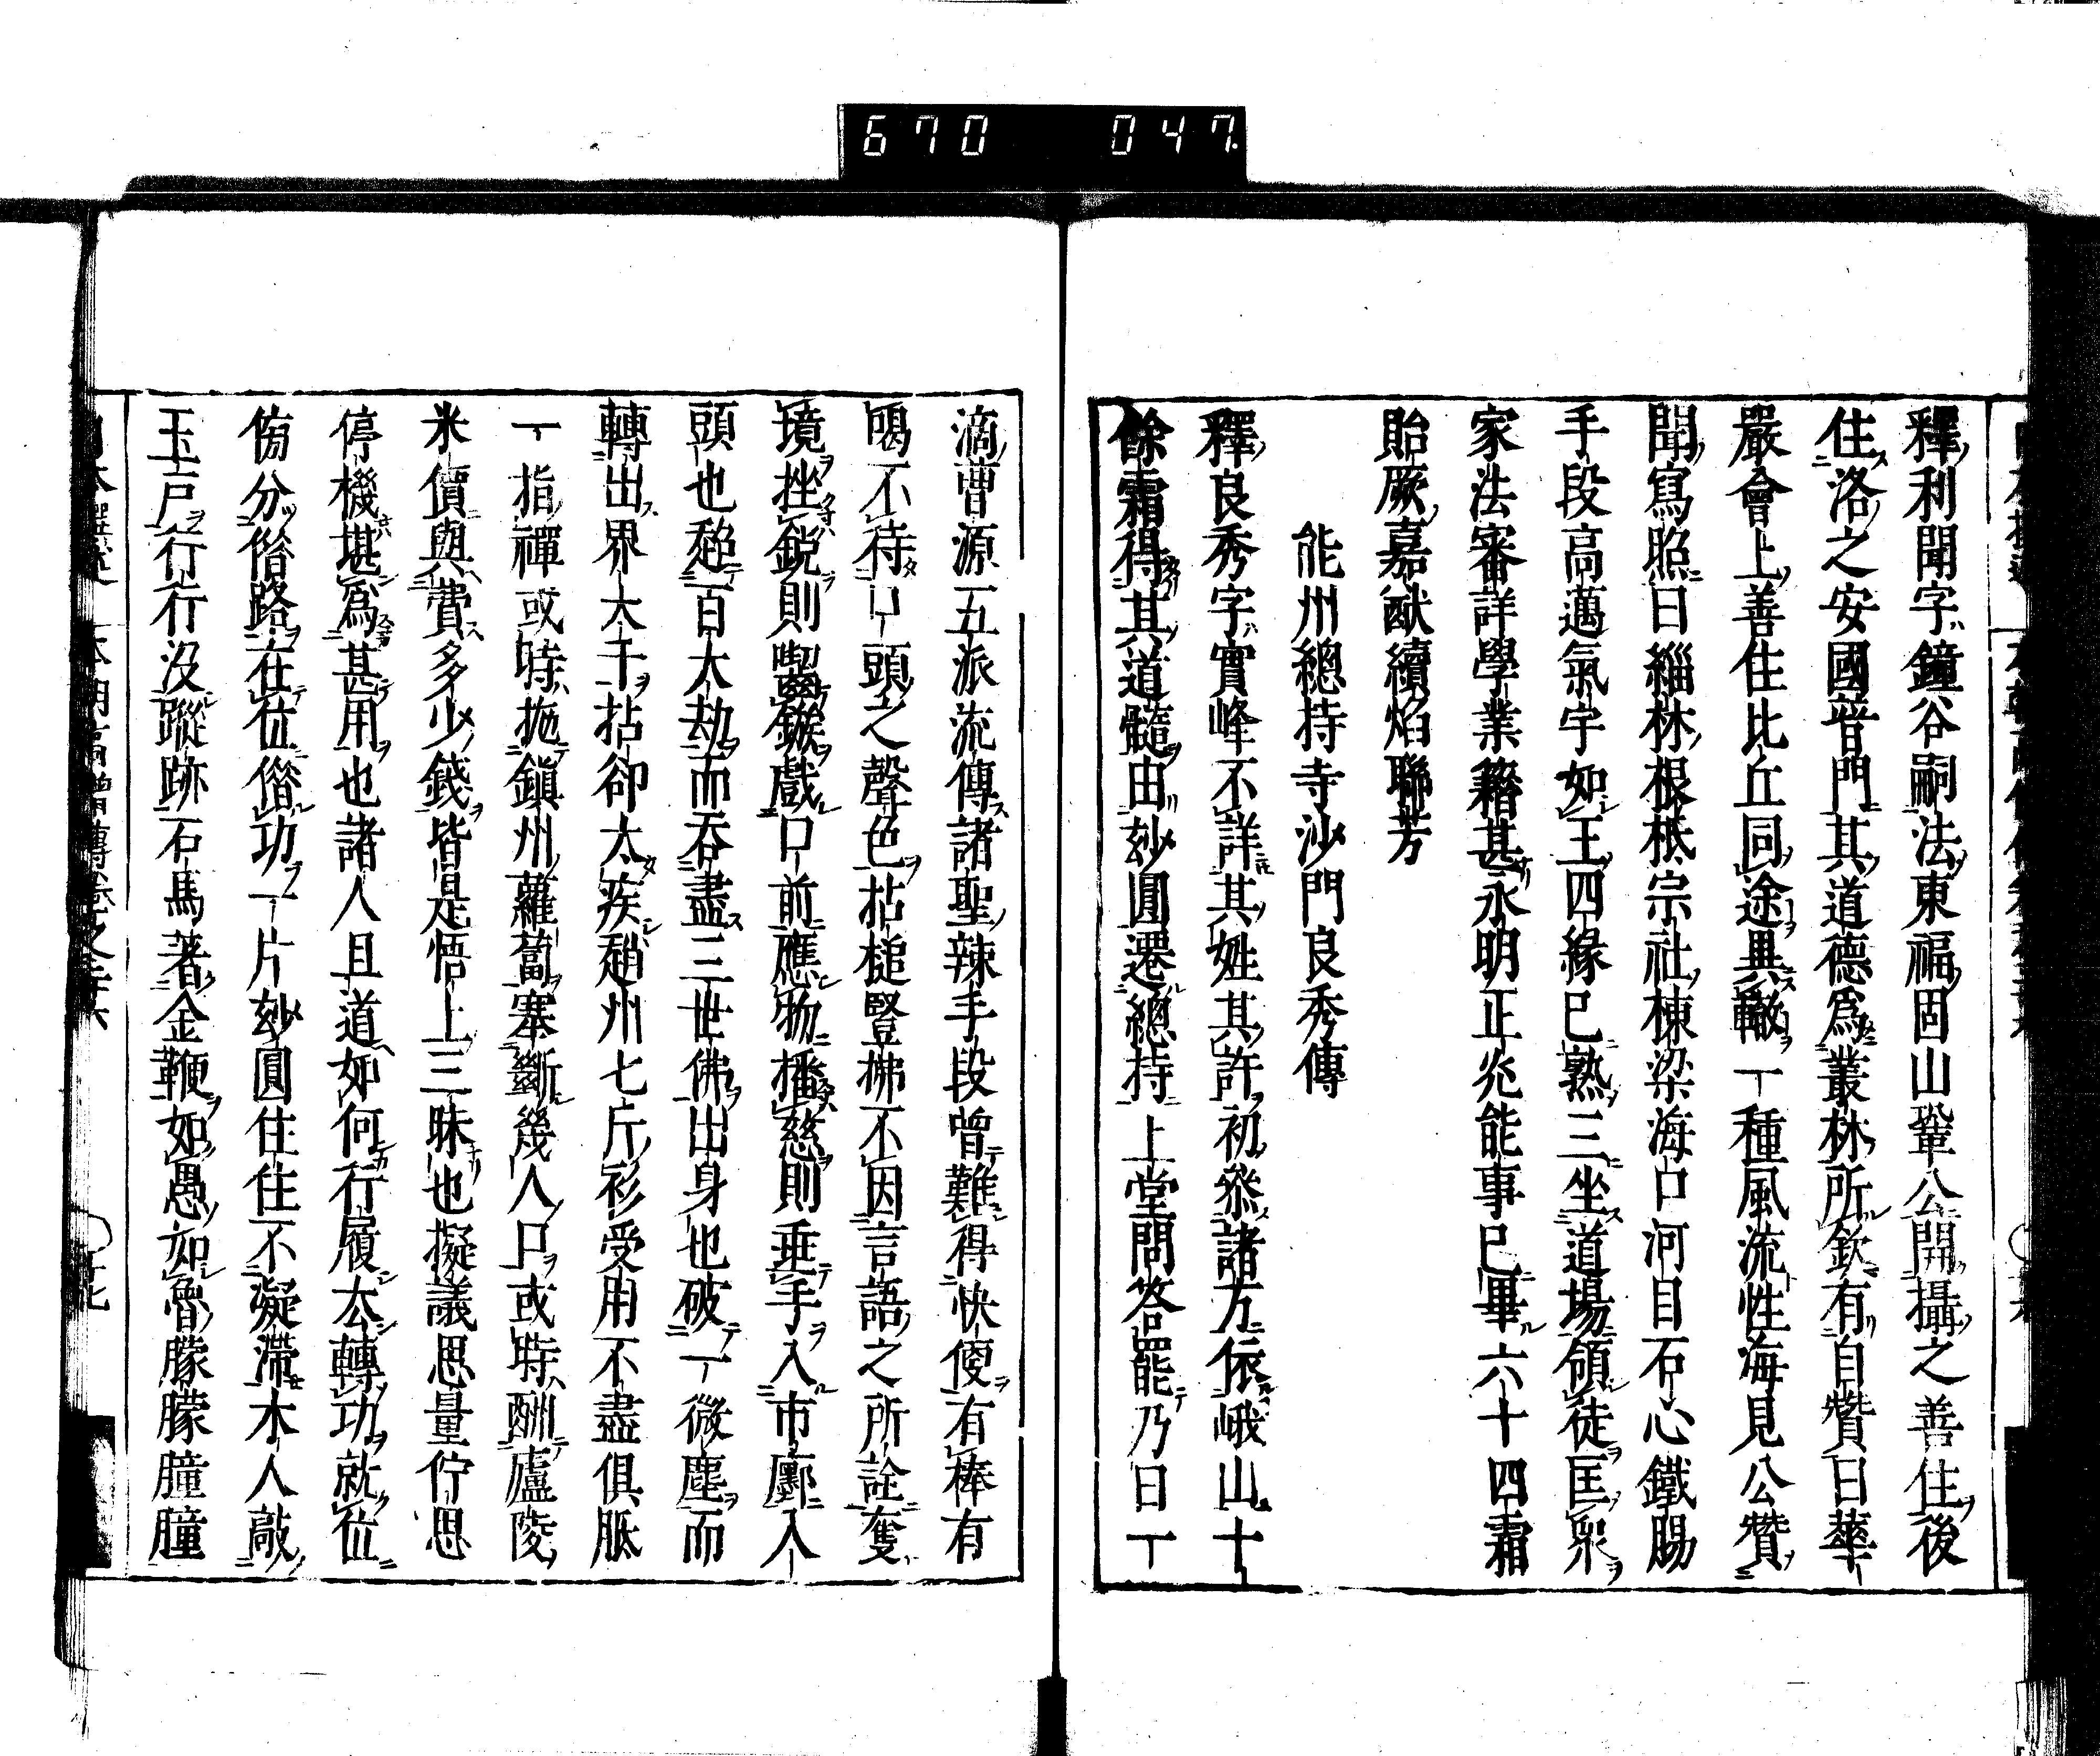 670 047
釋利聞字鐘谷嗣法東福固山鞏公開攝之善住後
住洛之安國普門其道德爲叢林所欽有自贊曰華
嚴會上善住比丘同途異轍一種風流性海見公贊
聞寫照曰緇林根柢宗社棟梁海口河目石心鐵腸
手段高邁氣宇如王四緣已熟三坐道場領徒匡衆
家法審詳學業籍甚永明正兆能事已畢六十四霜
貽厥嘉猷續焰聯芳
能州總持寺沙門良秀傳
釋良秀字實峰不詳其姓其許初參諸方依峨山十
餘霜得其道髓由玅圓遷總持上堂問答罷乃曰一
滴曹源五派流傳諸聖辣手段曾難得快便有棒有
喝不待口頭之聲色拈槌豎拂不因言語之所詮奪
境挫銳則囓鏃戲口前應物播慈則垂手入市鄽入
頭也超百大劫而吞盡三世佛出身也破一微塵而
轉出界大千拈卻太疾趙州七斤衫受用不盡俱胝
一指禪或時拖鎭州蘿蔔塞斷幾人口或時酬廬陵
米價與費多少錢皆是悟上三昧也擬議思量佇思
停機堪爲甚用也諸人且道如何行履去轉功就位
傍分偕路在位借功一片玅圓住住不凝滯木人敲
玉戶行行沒蹤跡石馬著金鞭如愚如魯朦朦朣朣